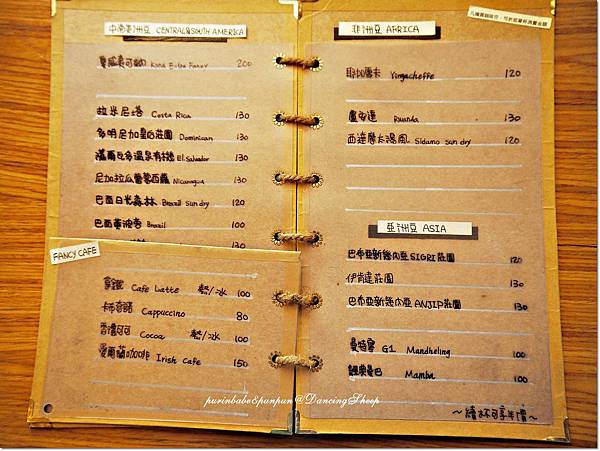 中南美洲豆 CENTRAL&SOUTH AMERICA
夏威夷可納 Kona Extra Fancy 200
拉米尼塔 Costa Rica 130
多明尼加皇后莊園 Dominican 130
薩爾瓦多溫泉有機 El Salvador 130
尼加拉瓜 Nicaragua 130
巴西日光森林 Brazil Sun dry 120
巴西黃波旁 Brazil 100
130
FANCY CAFE
拿鐵 Cafe Latte 熱/冰 100
卡布奇諾 Cappuccino 80
香濃可可 Cocoa 熱/冰 100
愛爾蘭咖啡 Irish Cafe 150
非洲豆 AFRICA
耶加雪夫 Yirgacheffe 120
盧安達 Rwanda 130
西達摩太陽風 Sidamo sun dry 120
亞洲豆 ASIA
巴布亞新幾內亞 SIGRI莊園 120
伊肯達莊園 130
巴布亞新幾內亞 ANJIP莊園 130
曼特寧 G1 Mandheling 100
Mamba 100
~續杯可享半價~
purinbabe&punpun@DancingSheep